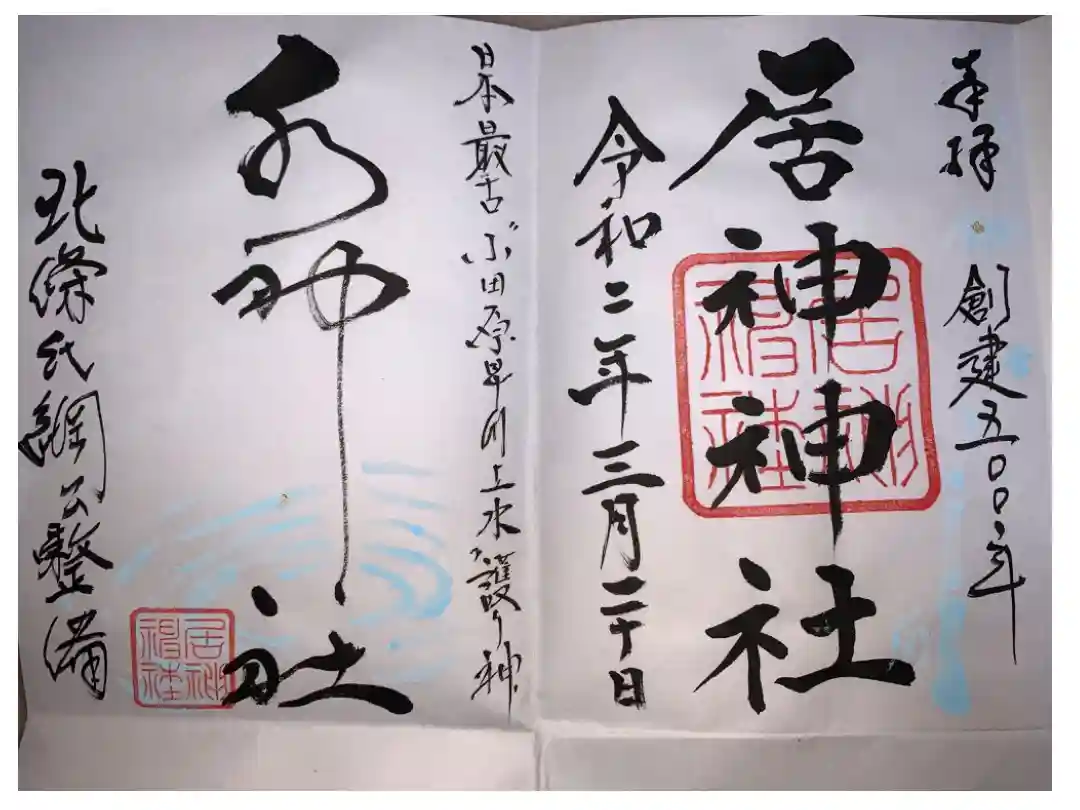 奉拝・創建五〇〇年
居神神社
居神神社
令和二年三月二十日
日本最古小田原早川上水護り神
水神社
居神神社
北條氏綱公整備